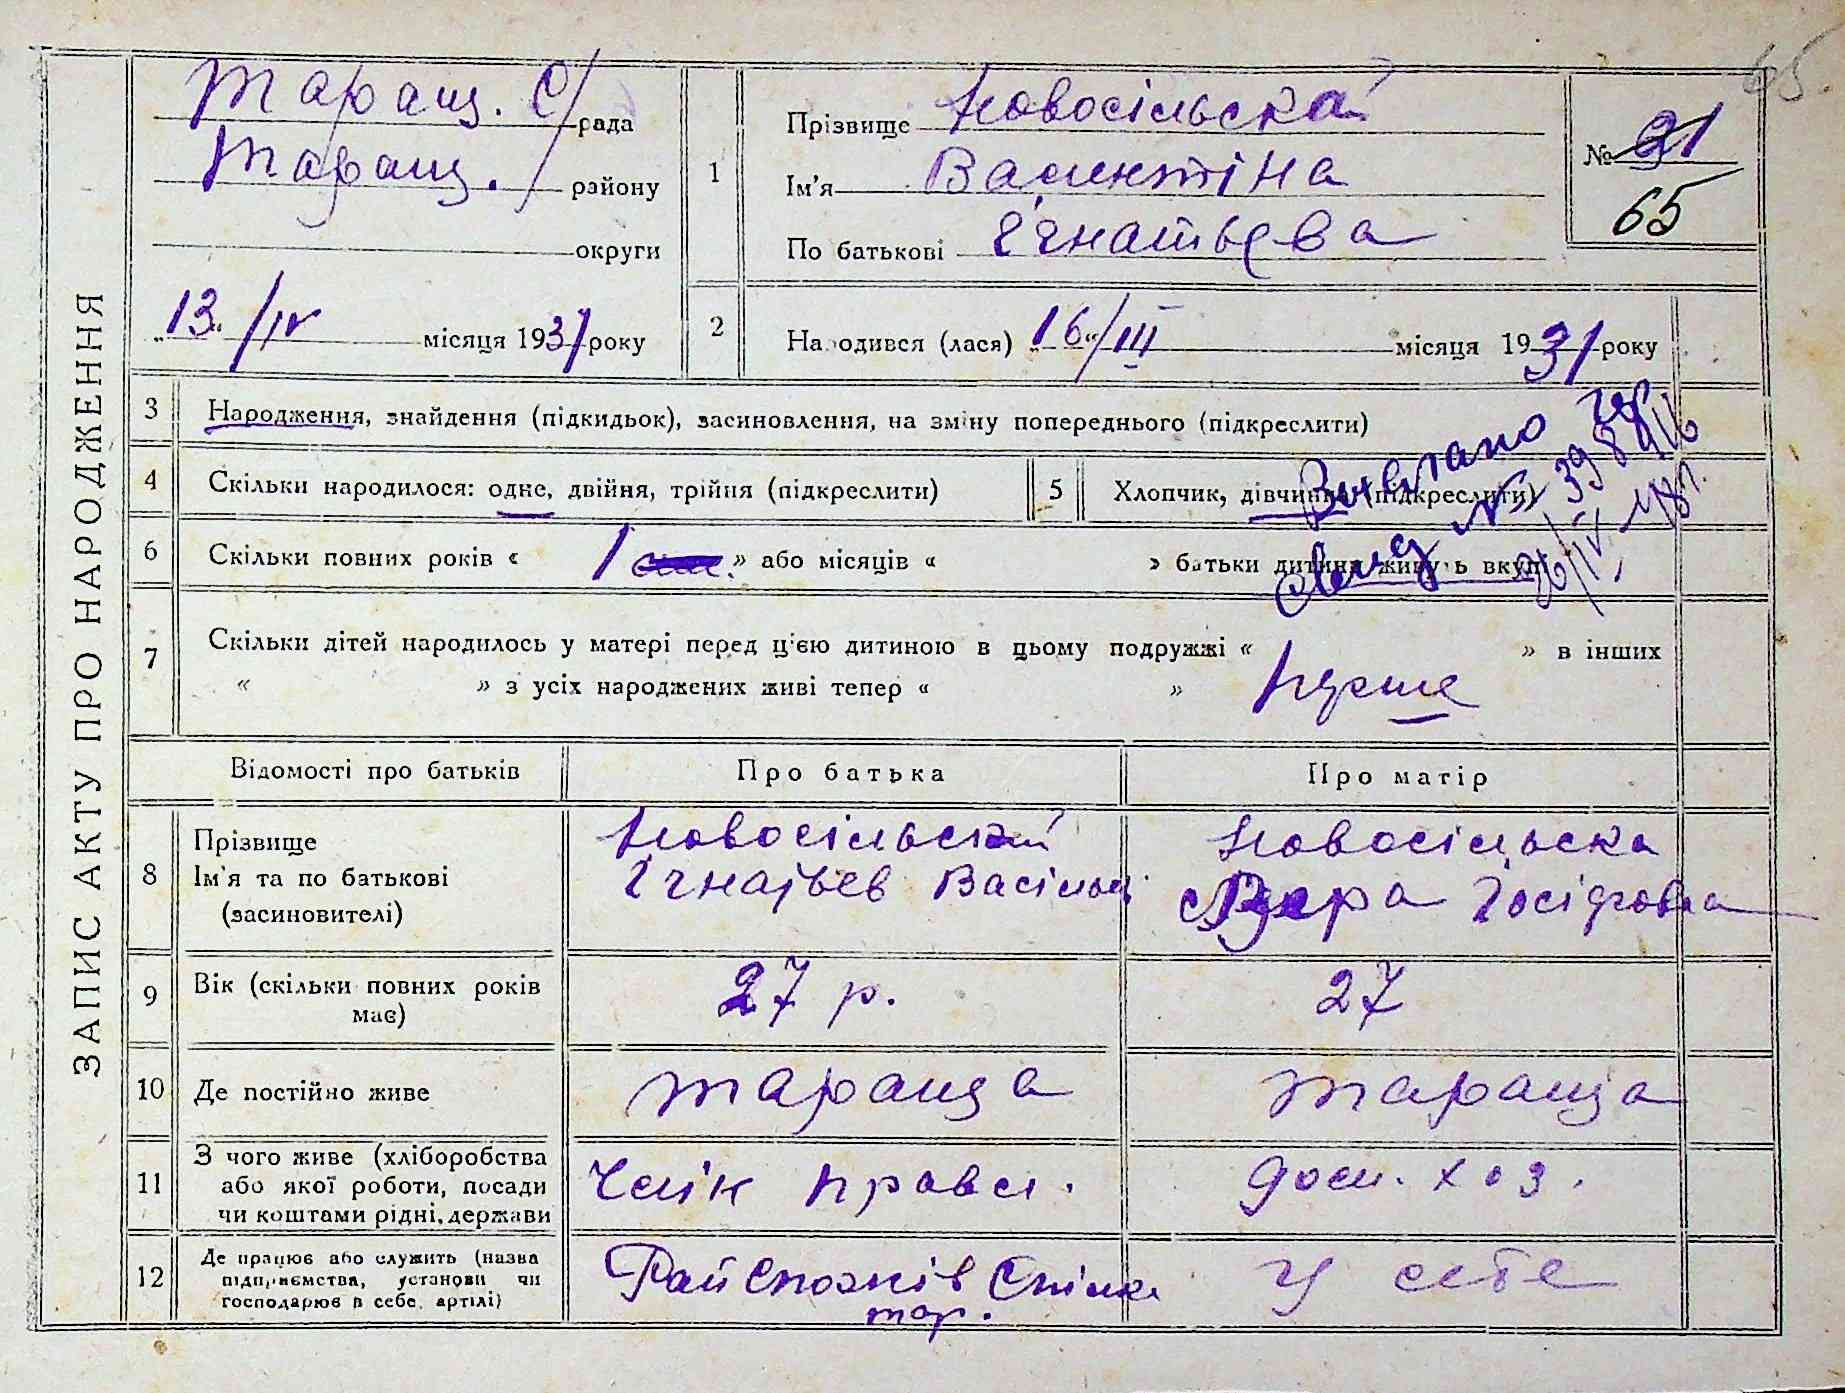 65.
ЗАПИС АКТУ ПРО НАРОДЖЕННЯ
Таращ. С/рада
Таращ. району
округи
„13“/IV місяця 1931 року
1
Прізвище Новосільська
Ім'я Валентіна
По батькові Ігнатьєва
№ 21
65
2
Народився (лася) „16“/III місяця 1931 року
3
Народження, знайдення (підкидьок), засиновлення, на зміну попереднього (підкреслити)
4
Скільки народилося: одне, двійня, трійня (підкреслити)
5
Хлопчик, дівчинка (підкреслити)
6
Скільки повних років « 1 » або місяців « » батьки дитини живуть вкупі
7
Скільки дітей народилось у матері перед ц'єю дитиною в цьому подружжі « » в інших
« » з усіх народжених живі тепер « » перше
Відомості про батьків
Про батька
Про матір
8
Прізвище
Ім'я та по батькові
(засиновителі)
Новосільский
Ігнатьєв Васільов
Новосільська
Вера Іосіфовна
9
Вік (скільки повних років
має)
27 р.
27
10
Де постійно живе
Тараща
Тараща
11
З чого живе (хліборобства
або якої роботи, посади
чи коштами рідні, держави
Член правл.
дом. хоз.
12
Де працює або служить (назва
підприємства, установи чи
господарює в себе, артілі)
Рай Спожив Спілка
тар.
У себе